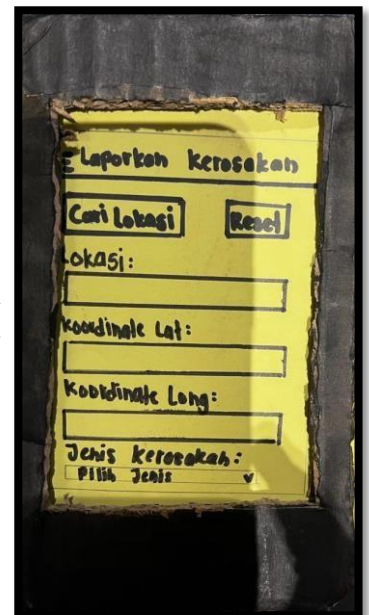 Laporkan kerosakan
Cari Lokasi Reset
Lokasi:
koordinate Lat:
Koordinate Long:
Jenis kerosakan:
Pilih Jenis